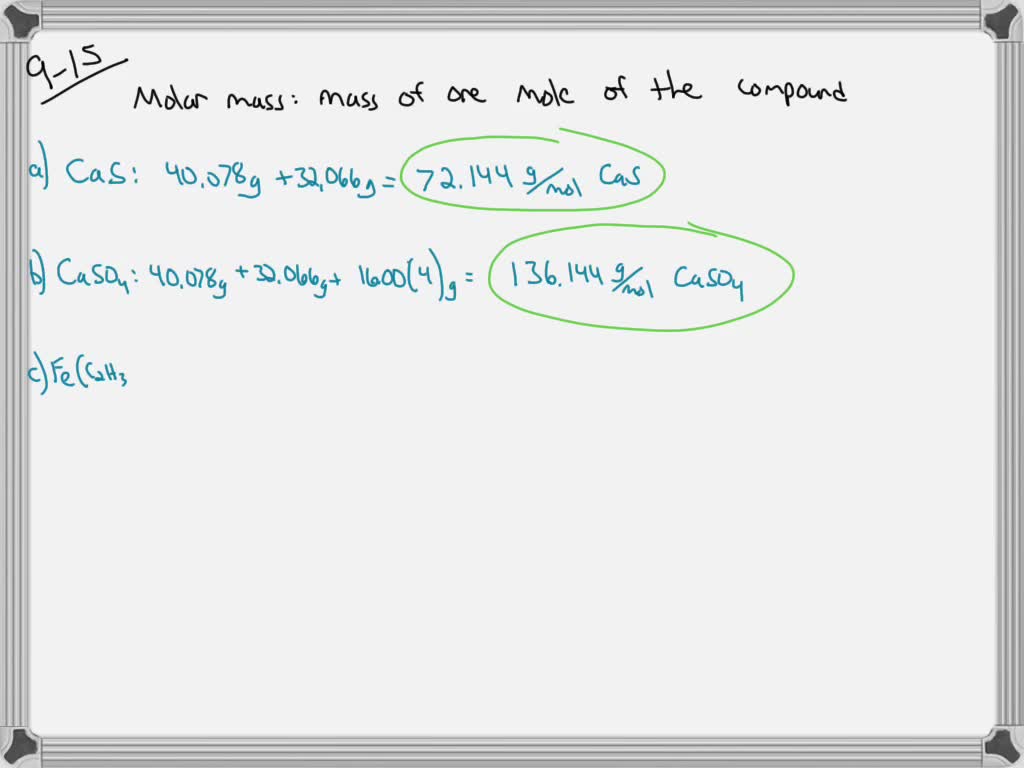 9-15
Molar mass: mass of one mole of the compound
a) CaS: 40.078g + 32.066g = 72.144 g/mol CaS
b) CaSO₄: 40.078g + 32.066g + 1600(4)g = 136.144 g/mol CaSO₄
c) Fe(C₂H₃